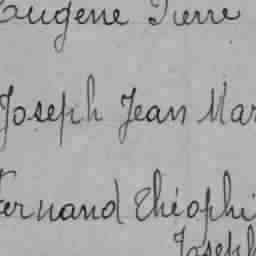 Eugène Pierre
Joseph Jean Mar
Fernand Théophi
Joseph